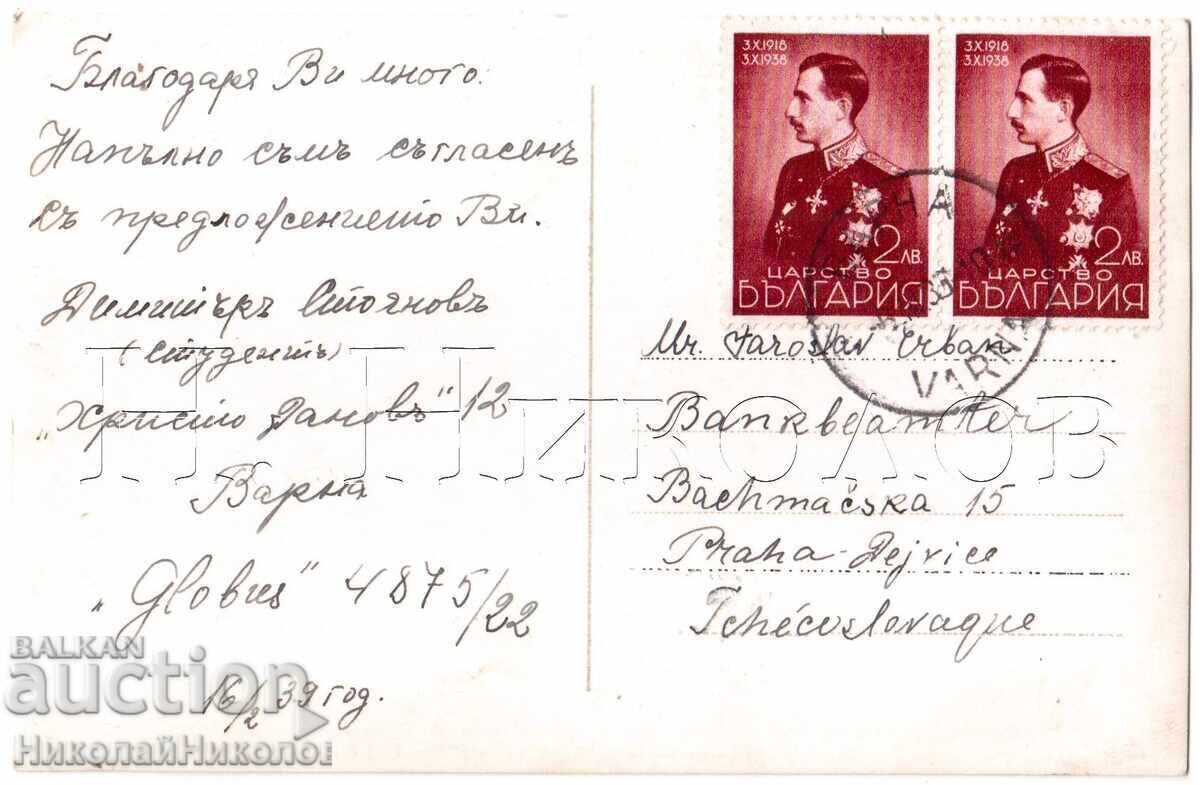 Благодаря Ви много.
Напълно съмъ съгласенъ
съ предложението Ви.
Димитъръ Стояновъ
(студентъ)
"Христо Дановъ" 12
Варна
"Globus" 4875/22
16/2 39 год.
3.X.1918
3.X.1938
2 ЛВ.
ЦАРСТВО
БЪЛГАРИЯ
3.X.1918
3.X.1938
2 ЛВ.
ЦАРСТВО
БЪЛГАРИЯ
ВАРНА
VARNA
Mr. Jaroslav Erban
Bankbeamter
Bachmačska 15
Praha-Dejvice
Tchécoslovaque
Н. НИКОЛОВ
BALKAN
auction
НиколайНиколов